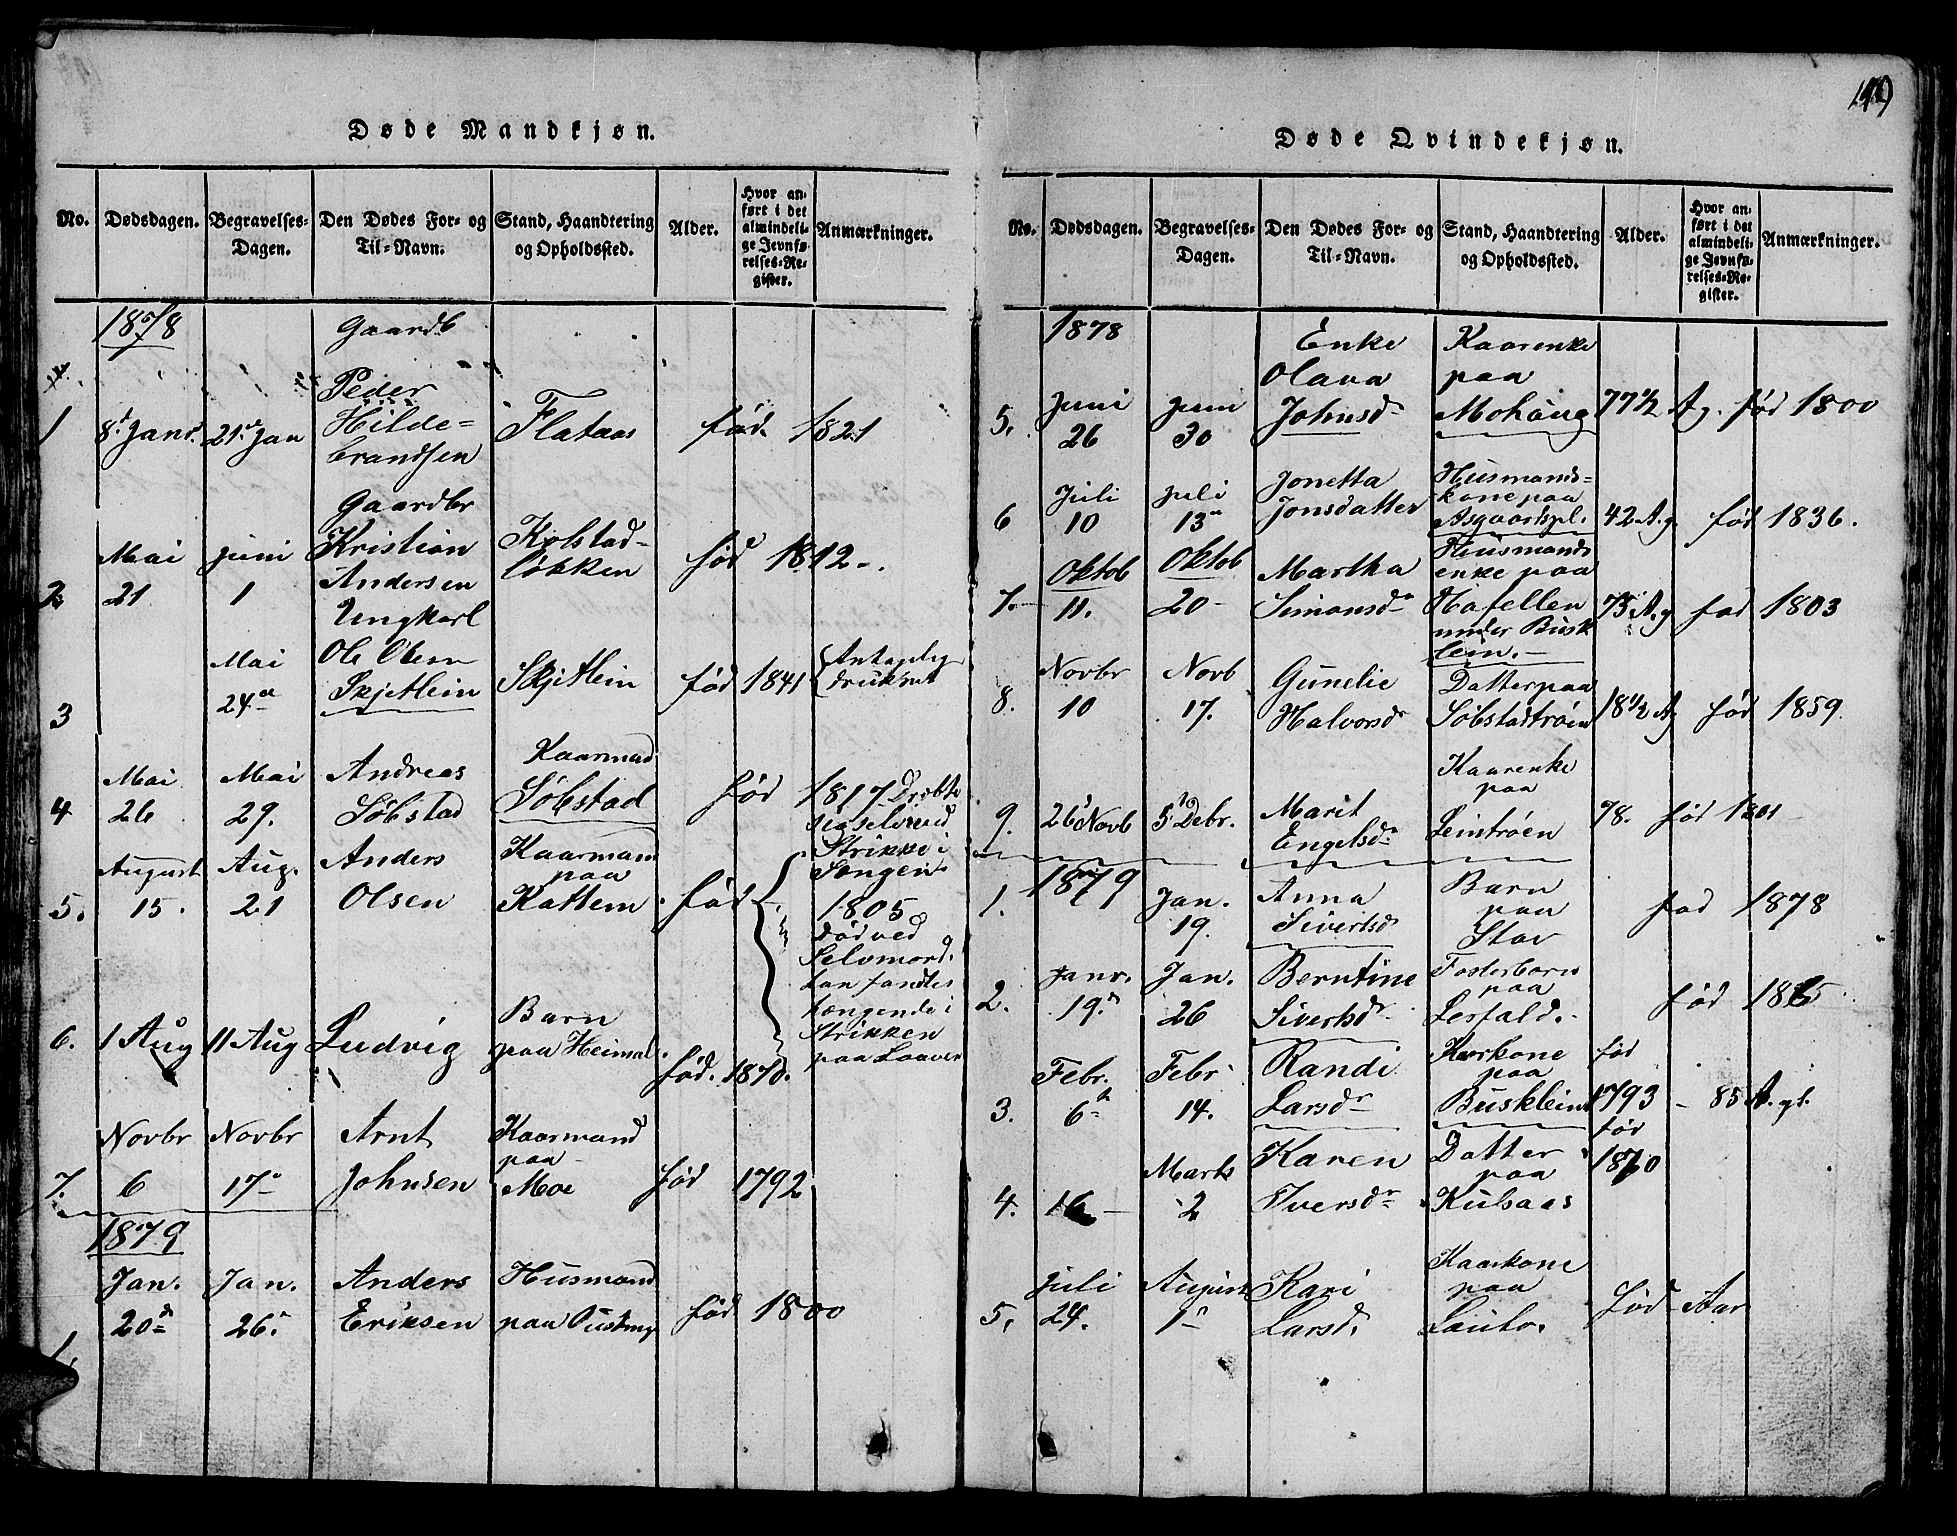 149
Døde Mandkjøn.
No. Dødsdagen. Begravelses-Dagen. Den Dødes For- og Til-Navn. Stand, Haandtering og Opholdssted. Alder. Hvor anført i det almindelige Jevnførelses-Register. Anmærkninger.
1878 Gaardb
1 8d Janr. 21de Jan Peder
Hilde=
brandsen Flataas fød. 1821
2 Mai 21 Juni 1 Gaardbr
Kristian
Andersen Kolstad-
løkken fød 1812
3 Mai 24de Ungkarl
Ole Olsen
Skjetlein Skjetlein fød 1841 Antagelig
druknet
4 Mai 26 Mai 29. Andreas
Søbstad Kaarmand
Søbstad fød 1817 Dræbte
sig selv ved
Strikke i
Sengen.
5. August 15. Aug. 21 Anders
Olsen Kaarmann
paa
Kattem. fød 1805
Død ved
Selvmord.
han fandtes
hængende i
Strikken
paa Laaven
6. 1 Aug 11 Aug Ludvig Barn
paa Heimdal. fød. 1870.
7. Novbr 6 Novbr 17 Arnt
Johnsen Kaarmand
paa
Moe fød 1792
1879
1. Jan. 20d Jan. 26. Anders
Eriksen Husmand
paa fød 1800
Døde Qvindekjøn.
No. Dødsdagen. Begravelses-Dagen. Den Dødes For- og Til-Navn. Stand, Haandtering og Opholdssted. Alder. Hvor anført i det almindelige Jevnførelses-Register. Anmærkninger.
1878
5. Juni 26 Juni 30 Enke
Olava
Johnsd Kaarenke
paa
Mohaug 77½ A g. fød 1800
6 Juli 10 Juli 13 Jonetta
Jonsdatter Husmands=
kone paa
Asgaardspl. 42 A. g fød 1836.
7. Oktob 11. Oktob 20 Martha
Simonsd Husmands
enke paa
Hafellen
under Busk
lein. 75 A. g fød 1803
8. Novbr 10 Novb 17. Gunelie
Halvorsd Datter paa
Søbstadtrøen 18½ A g fød 1859.
9. 26 Novb 5 Debr. Marit
Engelsd Kaarenke
paa
Leintrøen 78. fød 1801
1879
1. Jan. 19. Anna
Sivertsd Barn
paa
Stav fød 1878
2. Janr. 19. Jan. 26 Berntine
Sivertsd Fosterbarn
paa
Lerfald. fød
3. Febr. 6 Febr 14. Randi
Larsd Kaarkone
paa
Busklein fød
1793 85 A. gl.
4. Marts 2 Karen
Iversd Datter
paa
Kulsaas fød
1870
5. Juli 24. August 1 Kari
Larsd. Kaarkone
paa fød Aar